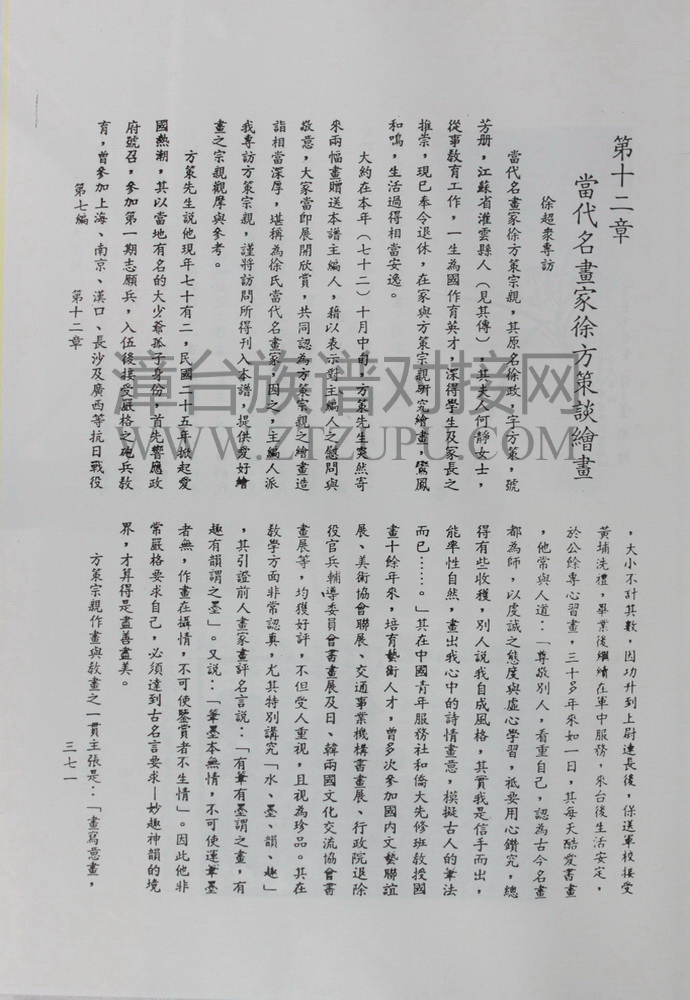 第十二章
當代名畫家徐方策談繪畫
徐超衆專訪
當代名畫家徐方策宗親，其原名徐政，字方策，號
芳册，江蘇省灌雲縣人（見其傳），其夫人何靜女士，
從事教育工作，一生為國作育英才，深得學生及家長之
推崇，現已奉令退休，在家與方策宗親研究繪畫，鸞鳳
和鳴，生活過得相當安逸。
大約在本年（七十二）十月中旬，方策先生突然寄
來兩幅畫贈送本譜主編人，藉以表示對主編人之慰問與
敬意，大家當即展開欣賞，共同認為方策宗親之繪畫造
詣相當深厚，堪稱為徐氏當代名畫家，因之，主編人派
我專訪方策宗親，謹將訪問所得刊入本譜，提供愛好繪
畫之宗親觀摩與參考。
方策先生說他現年七十有二，民國二十五年掀起愛
國熱潮，其以當地有名的大少爺孤子身份，首先響應政
府號召，參加第一期志願兵，入伍後接受嚴格之砲兵教
育，曾參加上海、南京、漢口、長沙及廣西等抗日戰役
第七編　第十二章
，大小不計其數，因功升到上尉連長後，保送軍校接受
黃埔洗禮，畢業後繼續在軍中服務，來台後生活安定，
於公餘專心習畫，三十多年來如一日，其每天酷愛書畫
，他常與人道：「尊敬別人，看重自己，認為古今名畫
都為師，以虔誠之態度與虛心學習，祇要用心鑽究，總
得有些收穫，別人說我自成風格，其實我是信手而出，
能率性自然，畫出我心中的詩情畫意，模擬古人的筆法
而已……。」其在中國青年服務社和僑大先修班教授國
畫十餘年來，培育藝術人才，曾多次參加國內文藝聯誼
展、美術協會聯展、交通事業機構書畫展、行政院退除
役官兵輔導委員會書畫展及日、韓兩國文化交流協會書
畫展等，均獲好評，不但受人重視，且視為珍品。其在
教學方面非常認真，尤其特別講究「水、墨、韻、趣」
，其引證前人畫家畫評名言說：「有筆有墨謂之畫，有
趣有韻謂之墨」。又說：「筆墨本無情，不可使運筆墨
者無，作畫在攝情，不可使鑒賞者不生情」。因此他非
常嚴格要求自己，必須達到古名言要求—妙趣神韻的境
界，才算得是盡善盡美。
方策宗親作畫與教畫之一貫主張是：「畫寫意畫，
三七一
章台族谱对接网
WWW.ZTZUPU.COM